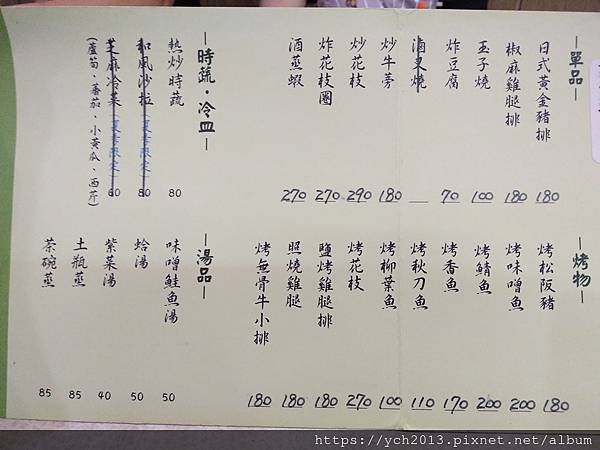 單品
日式黃金豬排 180
椒麻雞腿排 180
玉子燒 100
炸豆腐 70
滷叉燒
炒牛蒡 180
炒花枝 290
炸花枝圈 270
酒蒸蝦 270
時蔬・冷皿
熱炒時蔬 80
和風沙拉(夏季限定) 80
芝麻冷菜(夏季限定) 80
(蘆筍、蕃茄、小黃瓜、西芹)
烤物
烤松阪豬 180
烤味噌魚 200
烤鯖魚 200
烤香魚 170
烤秋刀魚 110
烤柳葉魚 100
烤花枝 270
鹽烤雞腿排 180
照燒雞腿 180
烤無骨牛小排 180
湯品
味噌鮭魚湯 50
蛤湯 50
紫菜湯 40
土瓶蒸 85
茶碗蒸 85
https://ych2013.pixnet.net/album